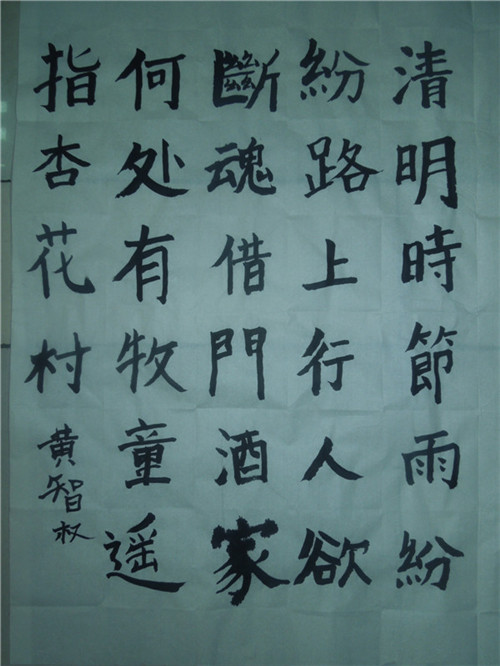 清明時節雨紛
紛路上行人欲
斷魂借門酒家
何处有牧童遥
指杏花村
黄智权